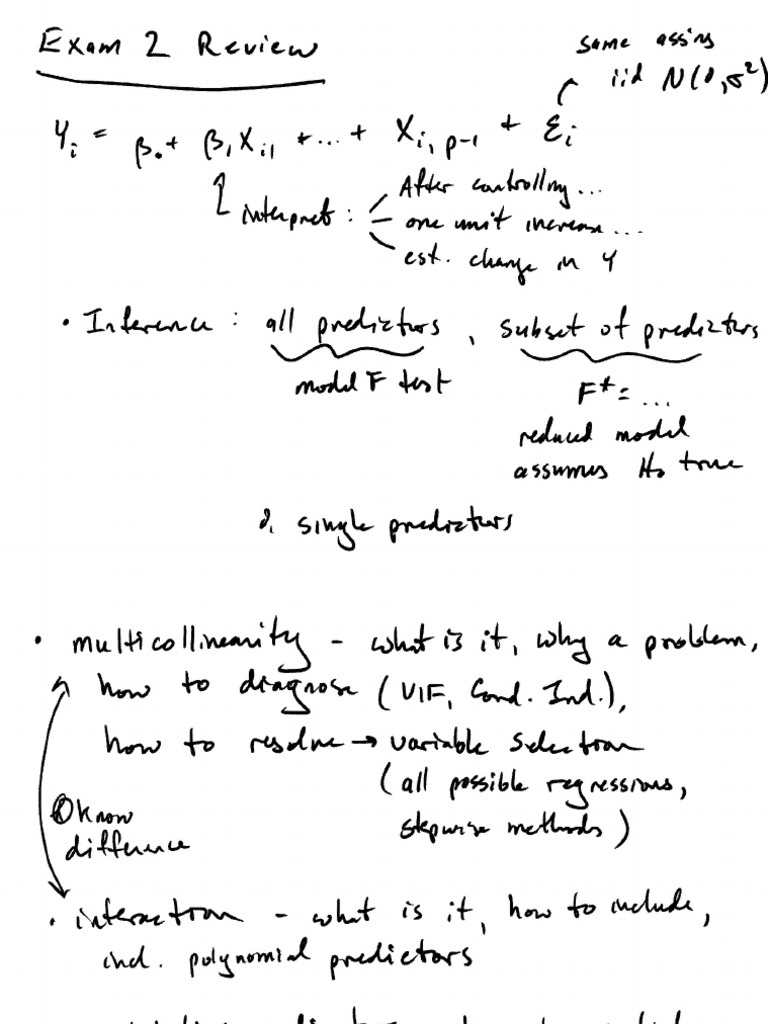 Exam 2 Review
same assms
iid N(0,σ²)
Yᵢ = β₀ + β₁Xᵢ₁ + ... + Xᵢ,ₚ₋₁ + εᵢ
interpret :
After controlling...
one unit increase...
est. change in Y
• Inference : all predictors , subset of predictors
model F test
F* = ...
reduced model
assumes H₀ true
& single predictors
• multicollinearity - what is it, why a problem,
how to diagnose (VIF, Cond. Ind.),
how to resolve → variable selection
(all possible regressions,
stepwise methods)
know
difference
• interaction - what is it, how to include,
incl. polynomial predictors